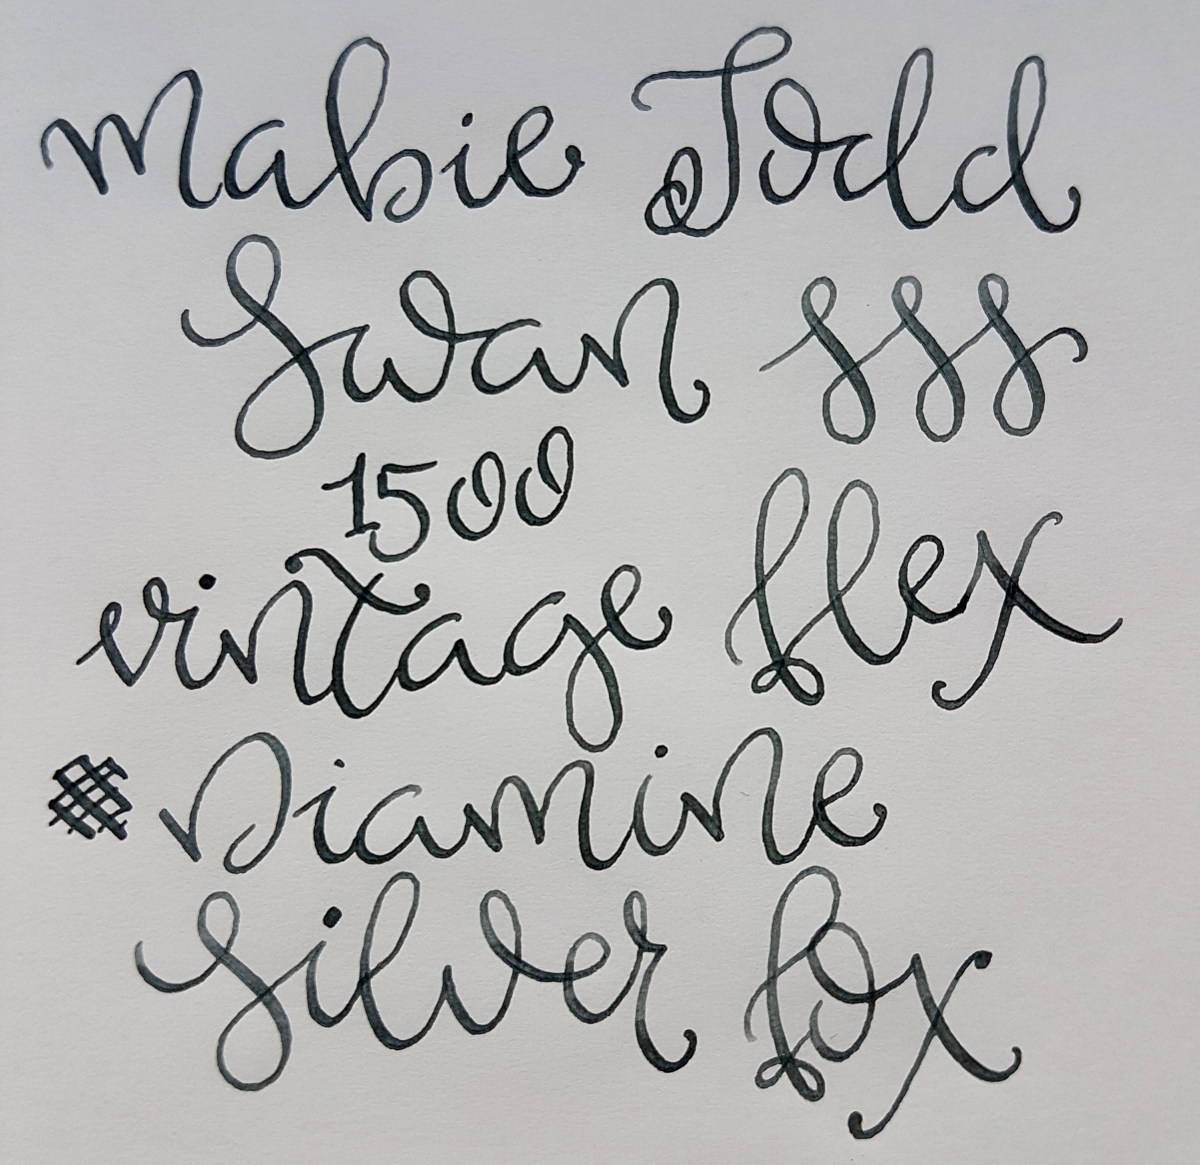 Mabie Todd
Swan sss
1500
vintage flex
# Diamine
Silver fox